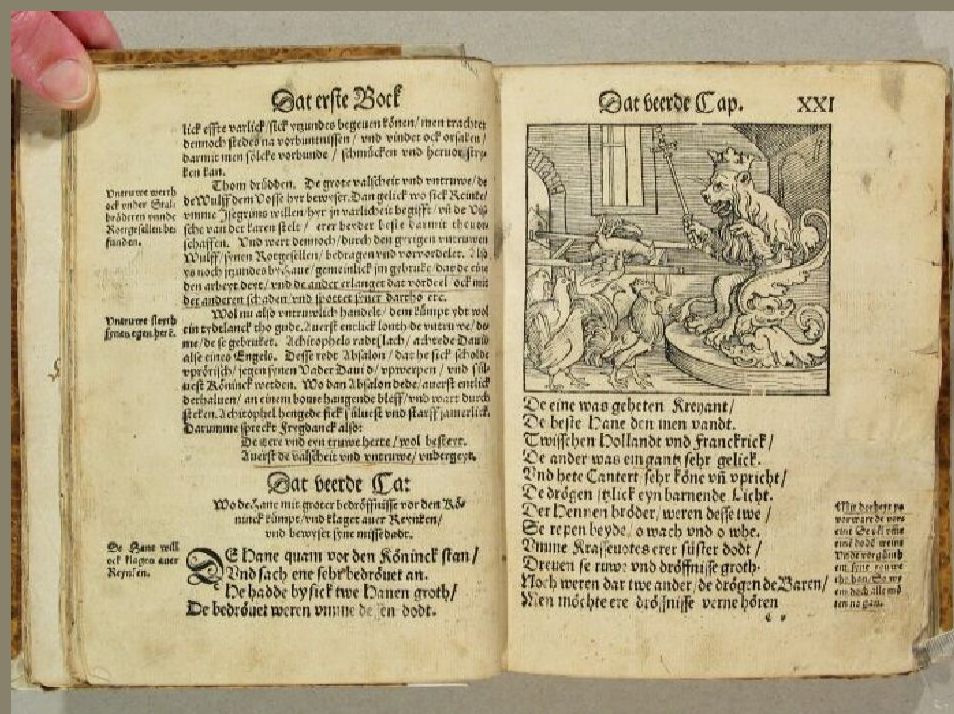 Dat erste Bock
lick effte varlick/ sick yrgundes begeuen könen/ men trachtet
dennoch stedes na vorbüntnissen/ vnd vindet ock orsaken/
darmit men sölcke vorbunde/ schmücken vnd heruor stry-
ken kan.
Thom drüdden. De grote valscheit vnd vntruwe/ de
de Wulff dem Vosse hyr bewyset. Dan gelick wo sick Reinke/
vmme Isegrims willen/ her in varlicheit begifft/ vñ de Vis-
sche van der karen stelt/ erer beyder beste darmit
schaffen. Vnd wert dennoch/ durch den gyrigen vntruwen
Wulff/ synen Rotgesellen/ bedragen vnd vorvordelet. Als
ys noch yzundes by gemeinlick im gebruke/ dar de eine
den arbeyt deyt/ vnd de ander erlanget dat vördeel ock mit
der anderen schaden/ vnd spottet syner dartho etc.
Vntruwe werth
ock vnder Stal-
brödern vnde
Rotgesellen be-
funden.
Wol nu also vntruwlich handelt/ dem kümpt ydt wol
ein tydtlanck tho gude. Auerst entlick lonth de vntruwe/ de-
me/ de se gebruket. Achitophels radtslach/ achtede Dauid
alse eines Engels. Desse redt Absalon/ dat he sick scholde
vprörisch/ jegen synen Vader Dauid/ vpwerpen/ vnd sül-
uest Köninck werden. Wo dan Absalon dede/ auerst entlick
derhaluen/ an einem bome hangende bleff/ vnd wart durch
steken. Achitophel hengede sick süluest vnd starff jamerlick.
Darumme spreckt Fregdanck also:
De ere vnd eyn truwe herte/ wol besteyt.
Auerst de valscheit vnd vntruwe/ vndergeyt.
Vntruwe sleyth
synen egen herē.
Dat veerde Cap
Wo de Hane mit groter bedröffnisse vor den Kö-
ninck kümpt/ vnd klaget auer Reynken/
vnd bewyset syne missedadt.
De Hane will
ock klagen auer
Reynken.
DE Hane quam vor den Köninck stan/
Vnd sach ene sehr bedröuet an.
He hadde by sick twe Hanen groth/
De bedröuet weren vmme dessen dodt.
Dat veerde Cap. XXI
De eine was geheten Kreyant/
De beste Hane den men vandt.
Twisschen Hollandt vnd Franckrick/
De ander was em gantz sehr gelick.
Vnd hete Cantert/ sehr köne vñ vpricht/
De drögen itzlick eyn barnende Licht.
Der Hennen bröder/ weren desse twe/
Se repen beyde/ o wach vnd o whe.
Vmme Krassenotes erer süster dodt/
Dreuen se ruwe vnd dröffnisse groth.
Noch weren dar twe ander/ de drögen de Baren/
Men möchte ere dröffnisse verne hören